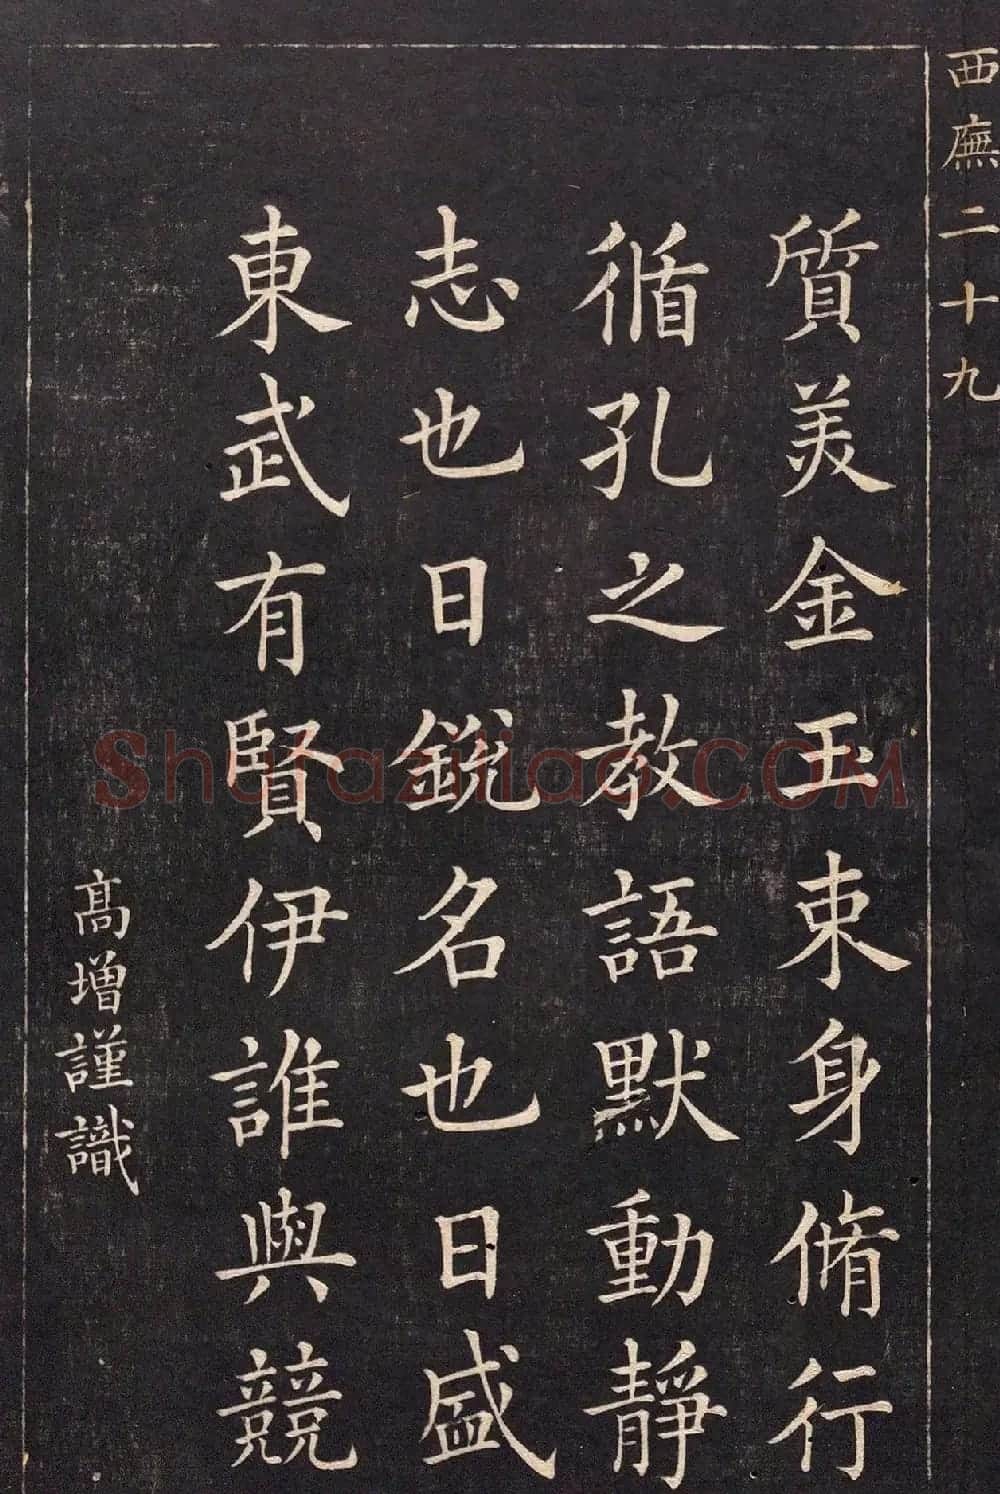 西廡二十九
質美金玉束身脩行
循孔之教語默動靜
志也日銳名也日盛
東武有賢伊誰與競
高增謹識
Shufaziliao.COM